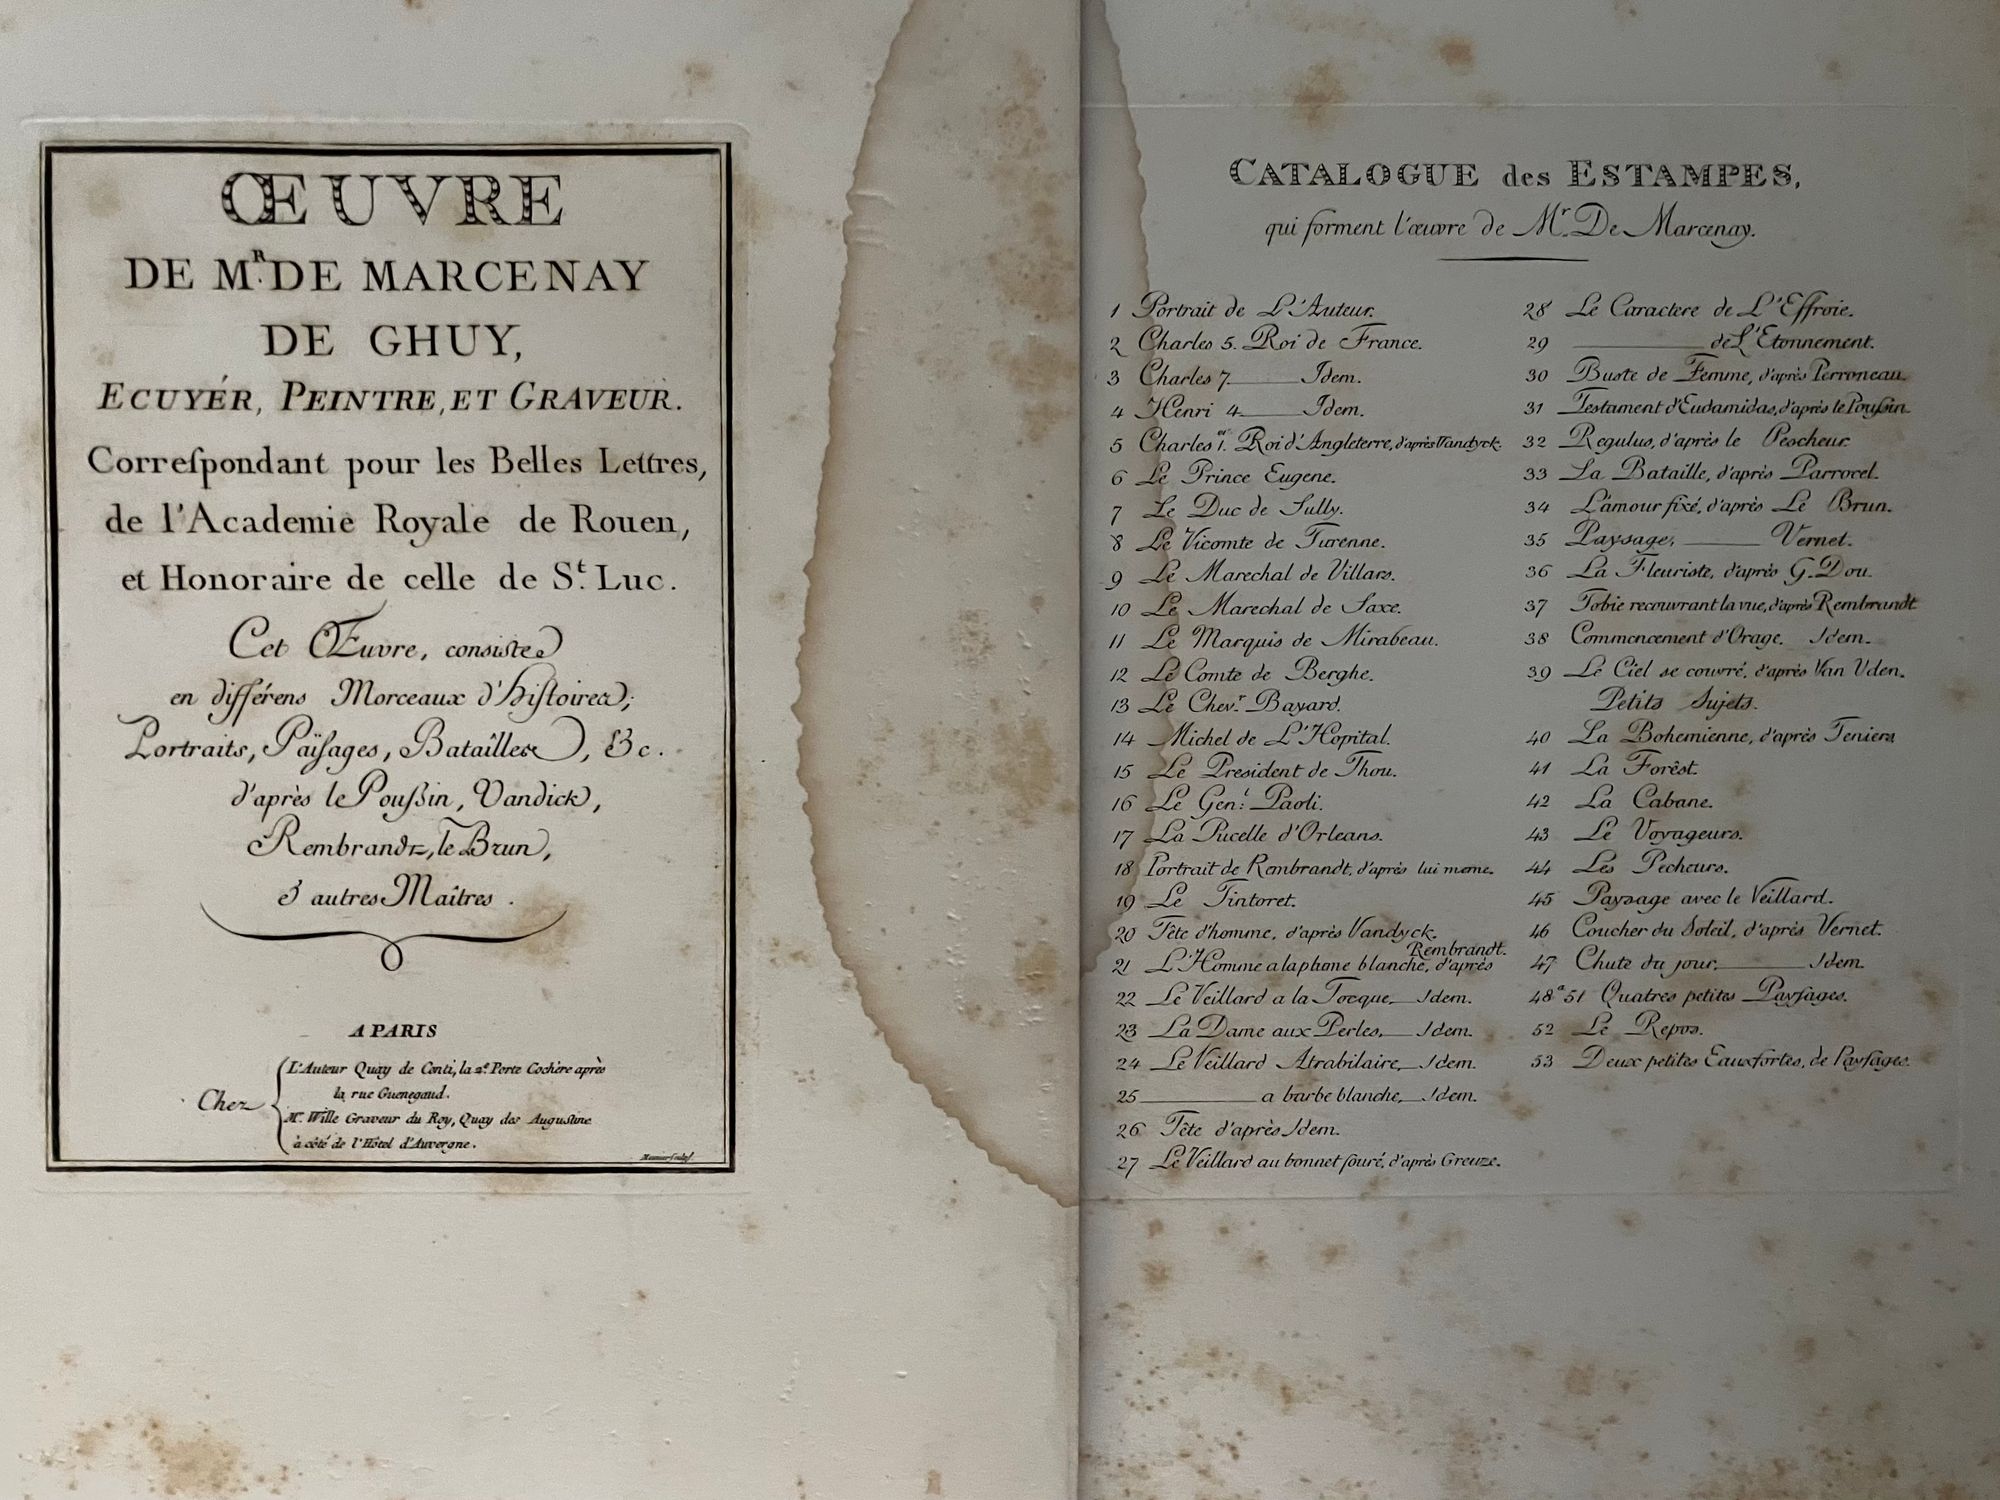 ŒUVRE
DE M.R DE MARCENAY
DE GHUY,
ECUYÉR, PEINTRE, ET GRAVEUR.
Correſpondant pour les Belles Lettres,
de l'Academie Royale de Rouen,
et Honoraire de celle de S.t Luc.
Cet Œuvre, consiste
en différens Morceaux d'Hiſtoires;
Portraits, Païſages, Batailles, &c.
d'après le Pouſsin, Vandick,
Rembrandt, le Brun,
& autres Maîtres.
A PARIS
Chez
L'Auteur Quay de Conti, la 2.e Porte Cochère après
la rue Guenegaud.
M.r Wille Graveur du Roy, Quay des Augustins
à côté de l'Hôtel d'Auvergne.
CATALOGUE des ESTAMPES,
qui forment l'œuvre de M.r De Marcenay.
1 Portrait de L'Auteur.
2 Charles 5. Roi de France.
3 Charles 7. Idem.
4 Henri 4 Idem.
5 Charles 1.er Roi d'Angleterre, d'après Vandyck.
6 Le Prince Eugene.
7 Le Duc de Sully.
8 Le Vicomte de Turenne.
9 Le Marechal de Villars.
10 Le Marechal de Saxe.
11 Le Marquis de Mirabeau.
12 Le Comte de Berghe.
13 Le Chev.r Bayard.
14 Michel de L'Hopital.
15 Le President de Thou.
16 Le Gen.l Paoli.
17 La Pucelle d'Orleans.
18 Portrait de Rembrandt, d'après lui meme.
19 Le Tintoret.
20 Tête d'homme, d'après Vandyck.
21 L'Homme a la plume blanche, d'après Rembrandt.
22 Le Veillard a la Tocque, Idem.
23 La Dame aux Perles, Idem.
24 Le Veillard Atrabilaire, Idem.
25 a barbe blanche, Idem.
26 Tête d'après Idem.
27 Le Veillard au bonnet fouré, d'après Greuze.
28 Le Caractere de L'Effroie.
29 de L'Etonnement.
30 Buste de Femme, d'après Perroneau.
31 Testament d'Eudamidas, d'après le Pouſsin.
32 Regulus, d'après le Pescheur.
33 La Bataille, d'après Parrocel.
34 L'amour fixé, d'après Le Brun.
35 Paysage, Vernet.
36 La Fleuriste, d'après G. Dou.
37 Tobie recouvrant la vue, d'après Rembrandt.
38 Commencement d'Orage. Idem.
39 Le Ciel se couvré, d'après Van Uden.
Petits Sujets.
40 La Bohemienne, d'après Teniers
41 La Forêst.
42 La Cabane.
43 Le Voyageurs.
44 Les Pecheurs.
45 Paysage avec le Veillard.
46 Coucher du Soleil, d'après Vernet.
47 Chute du jour, Idem.
48 a 51 Quatres petites Payſages.
52 Le Repos.
53 Deux petites Eauxfortes, de Payſages.